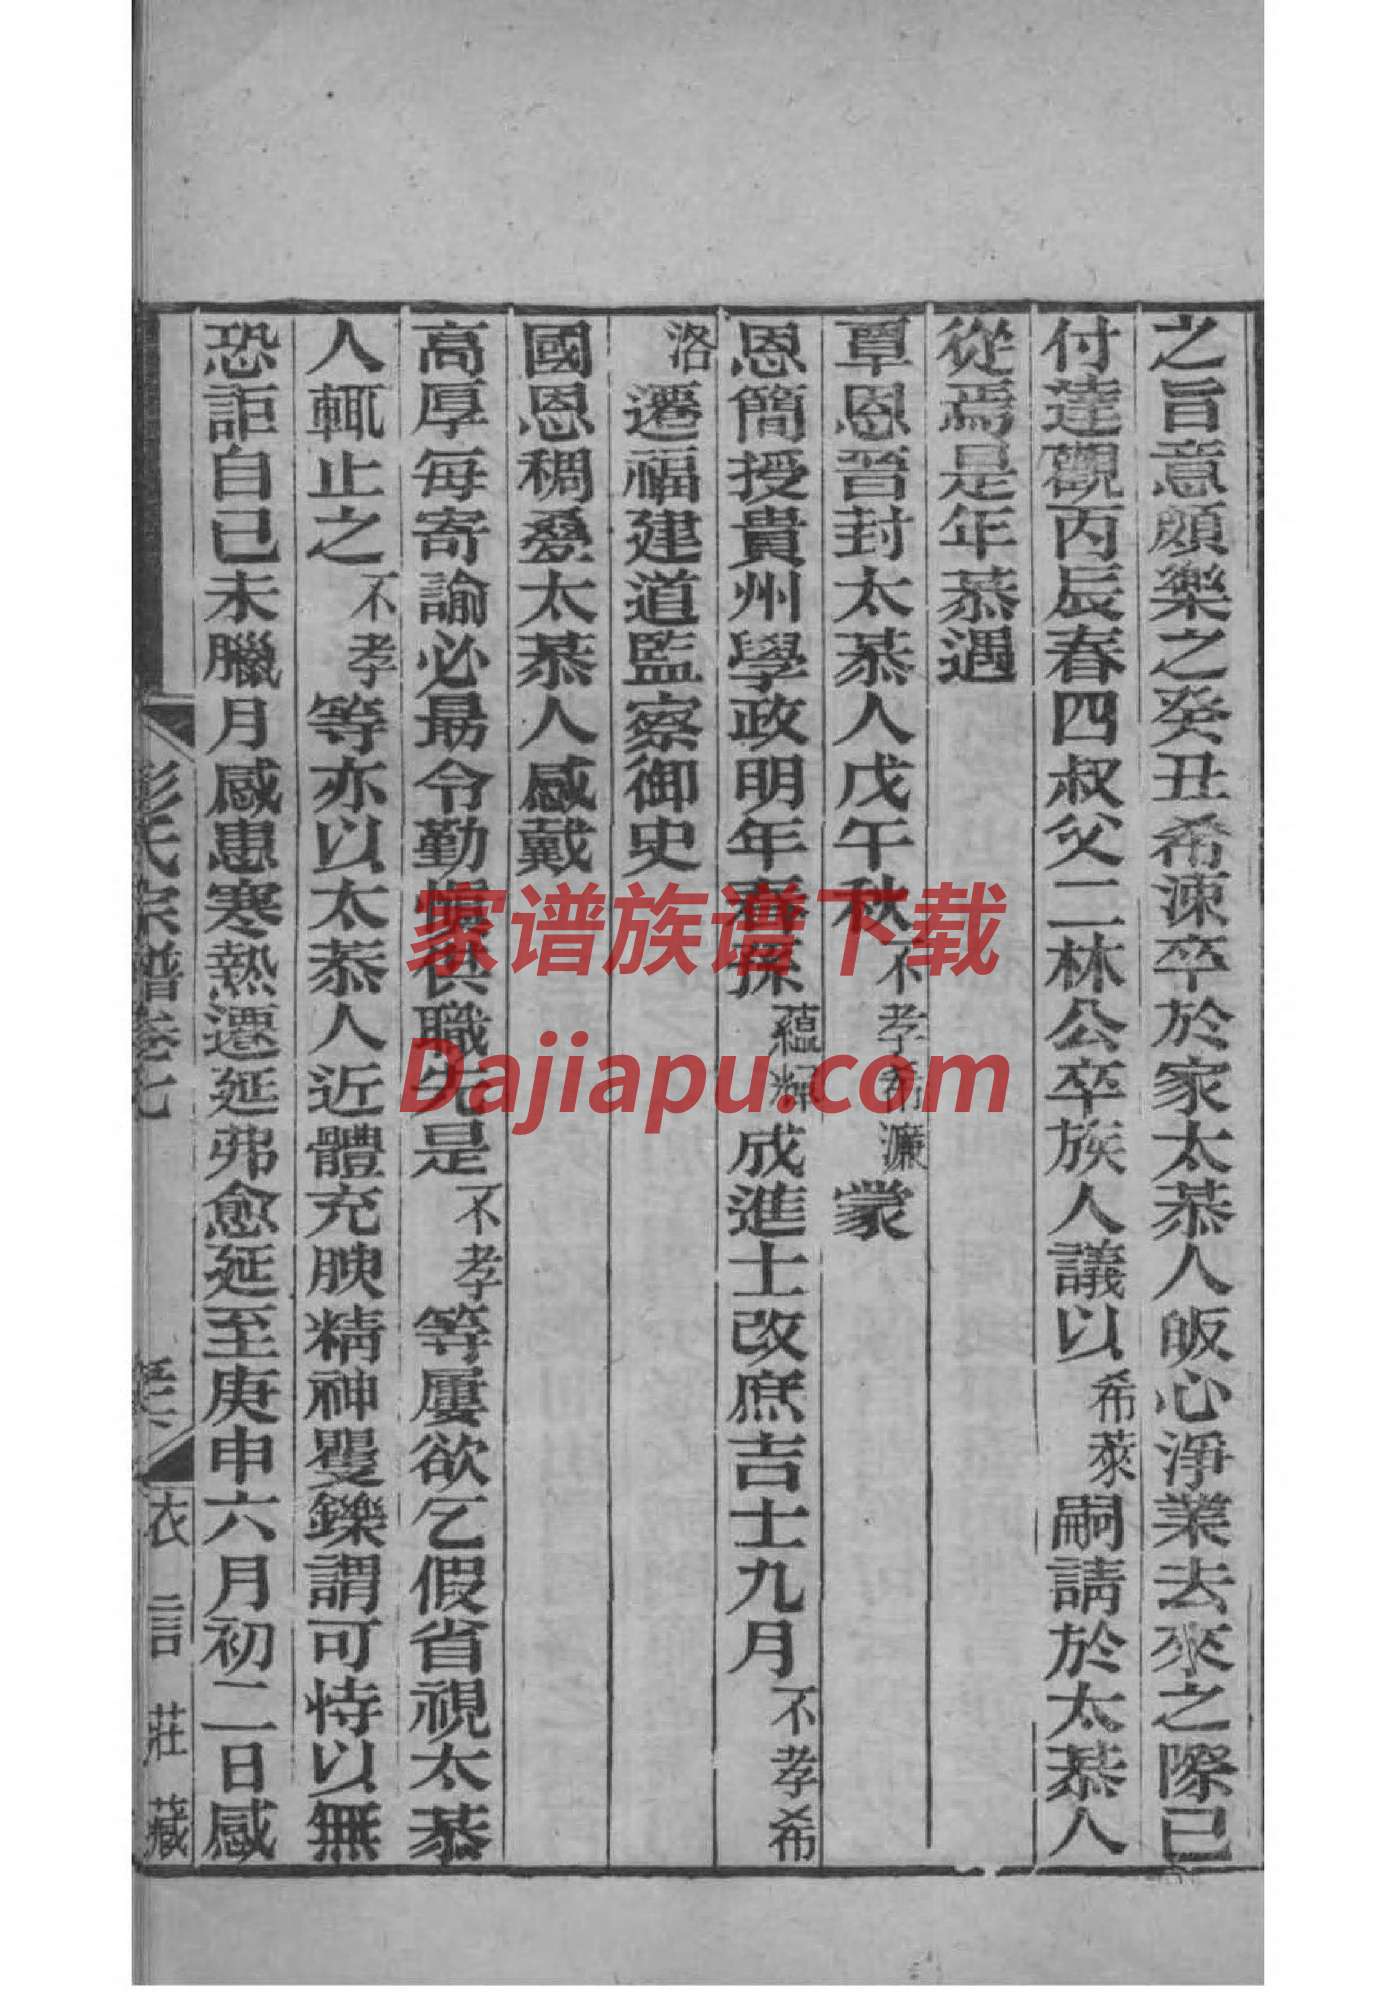 之旨意頗樂之癸丑希涑卒於家太恭人皈心淨業去來之際已
付達觀丙辰春四叔父二林公卒族人議以希萊嗣請於太恭人
從焉是年恭遇
覃恩晉封太恭人戊午秋不孝希濂蒙
恩簡授貴州學政明年春孫蘊輝成進士改庶吉士九月不孝希
洛遷福建道監察御史
國恩稠疊太恭人感戴
高厚每寄諭必勗令勤慎供職先是不孝等屢欲乞假省視太恭
人輒止之不孝等亦以太恭人近體充腴精神矍鑠謂可恃以無
恐詎自己未臘月感患寒熱遷延弗愈延至庚申六月初二日感
彭氏宗譜卷七
衣言莊藏
家谱族谱下载
Dajiapu.com